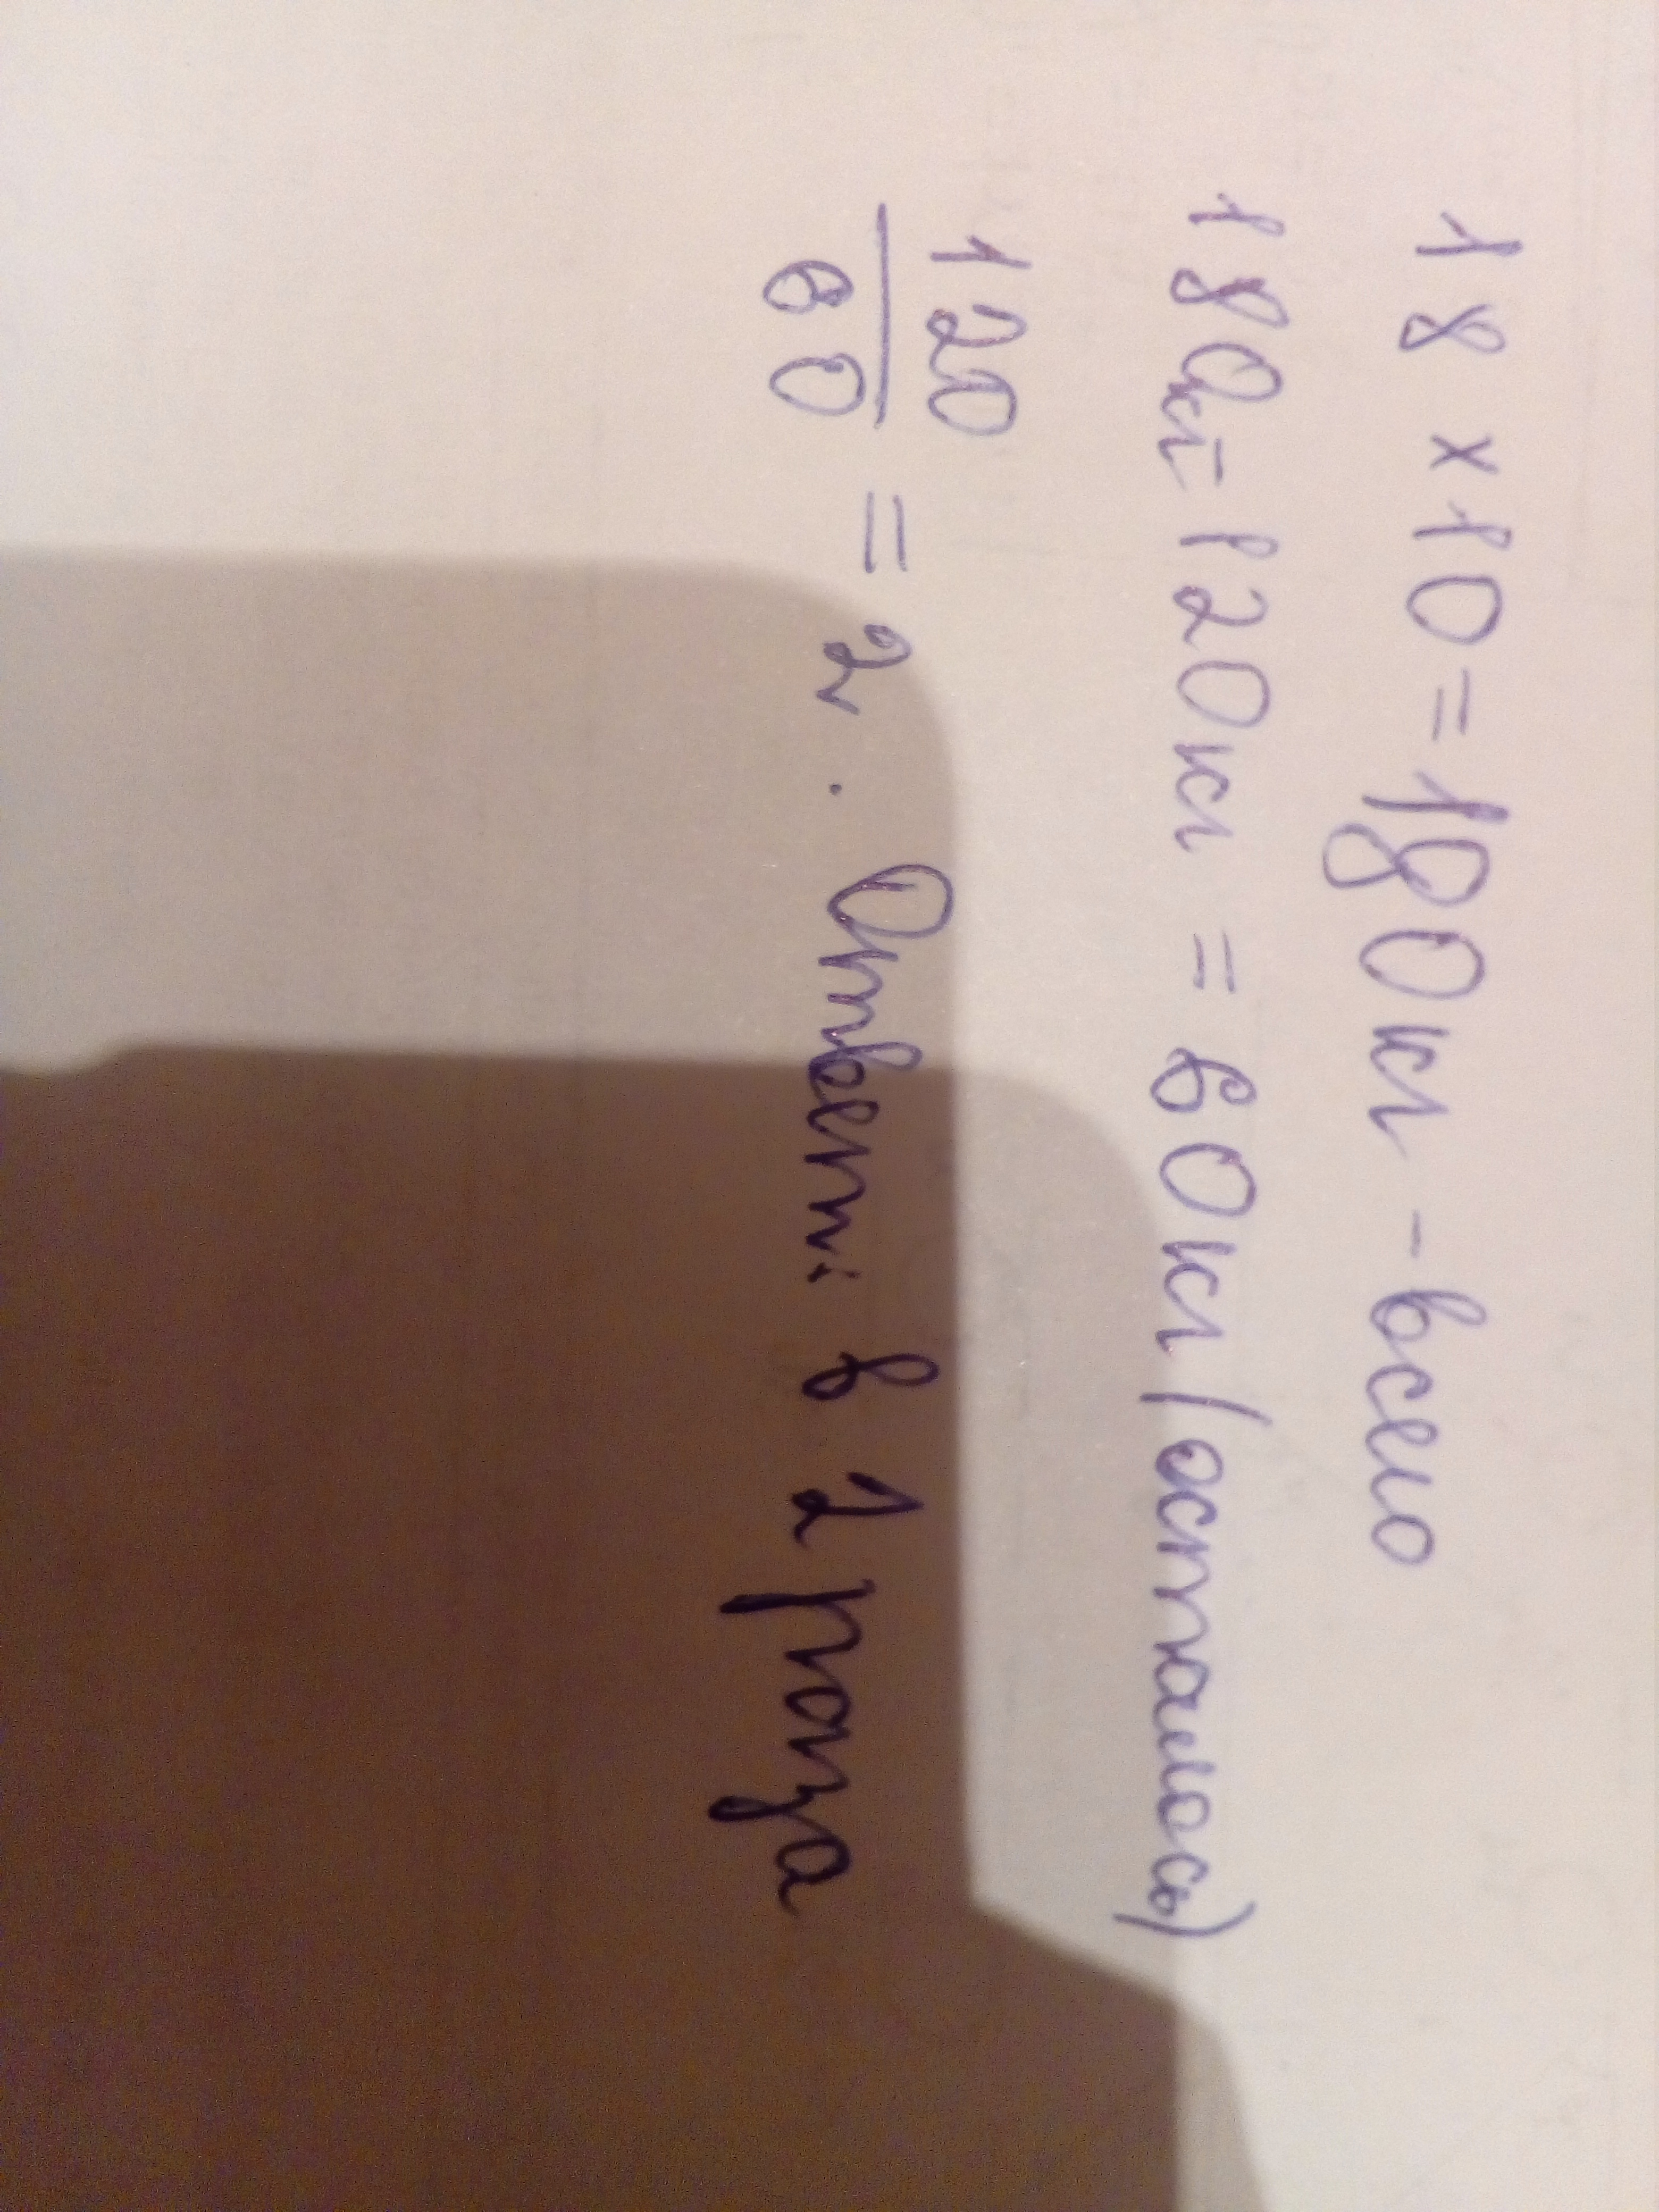 18 × 10 = 180 кг - всего
180кг - 120кг = 60кг (осталось)
120
60 = 2. Ответ: в 2 раза